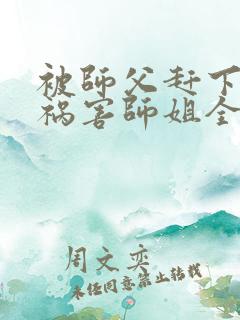 被師父赶下
祸害師姐全
周文奕
未经同意禁止转载